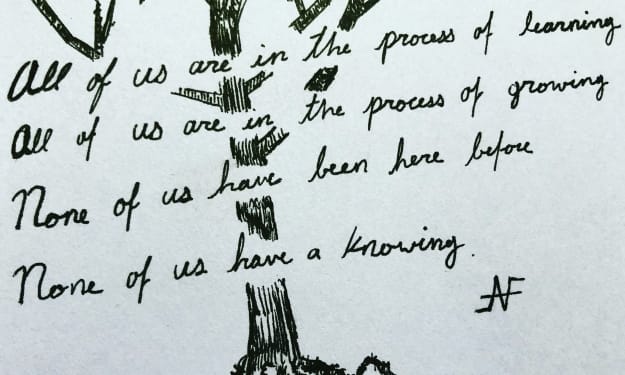 All of us are in the process of learning
All of us are in the process of growing
None of us have been here before
None of us have a knowing.
AF